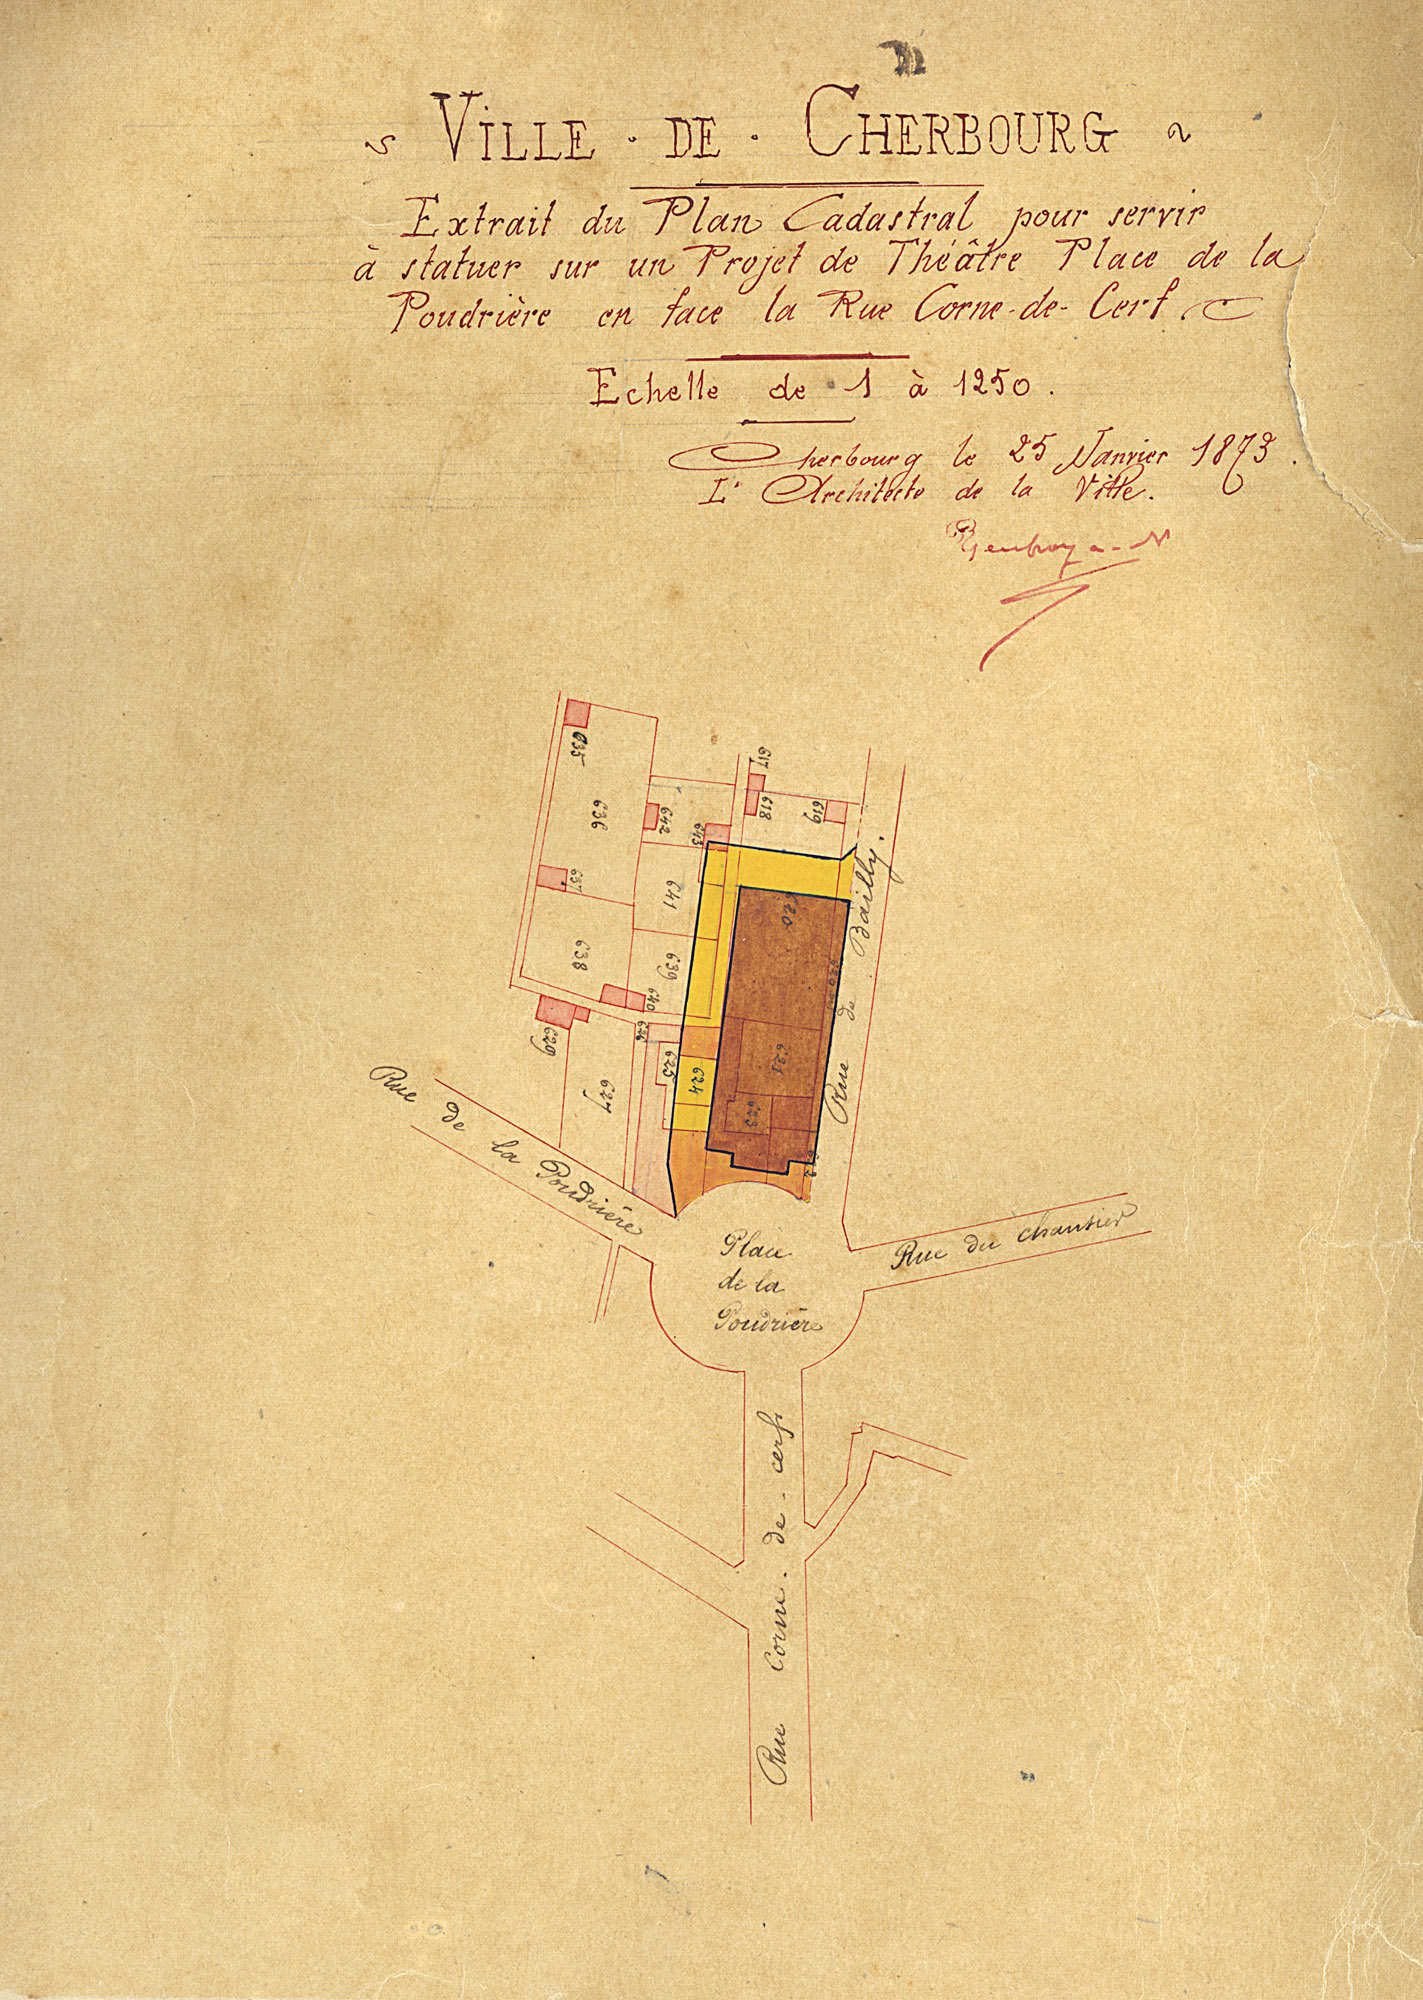 VILLE · DE · CHERBOURG
Extrait du Plan Cadastral pour servir
à statuer sur un Projet de Théâtre Place de la
Poudrière en face la Rue Corne-de-Cerf.
Echelle de 1 à 1250.
Cherbourg le 25 Janvier 1873.
L'Architecte de la Ville.
635
636
637
638
642
643
641
639
640
617
618
619
620
621
623
624
625
626
627
629
Rue de Bailly.
Rue de la Poudrière
Place
de la
Poudrière
Rue du chantier
Rue Corne-de-cerf